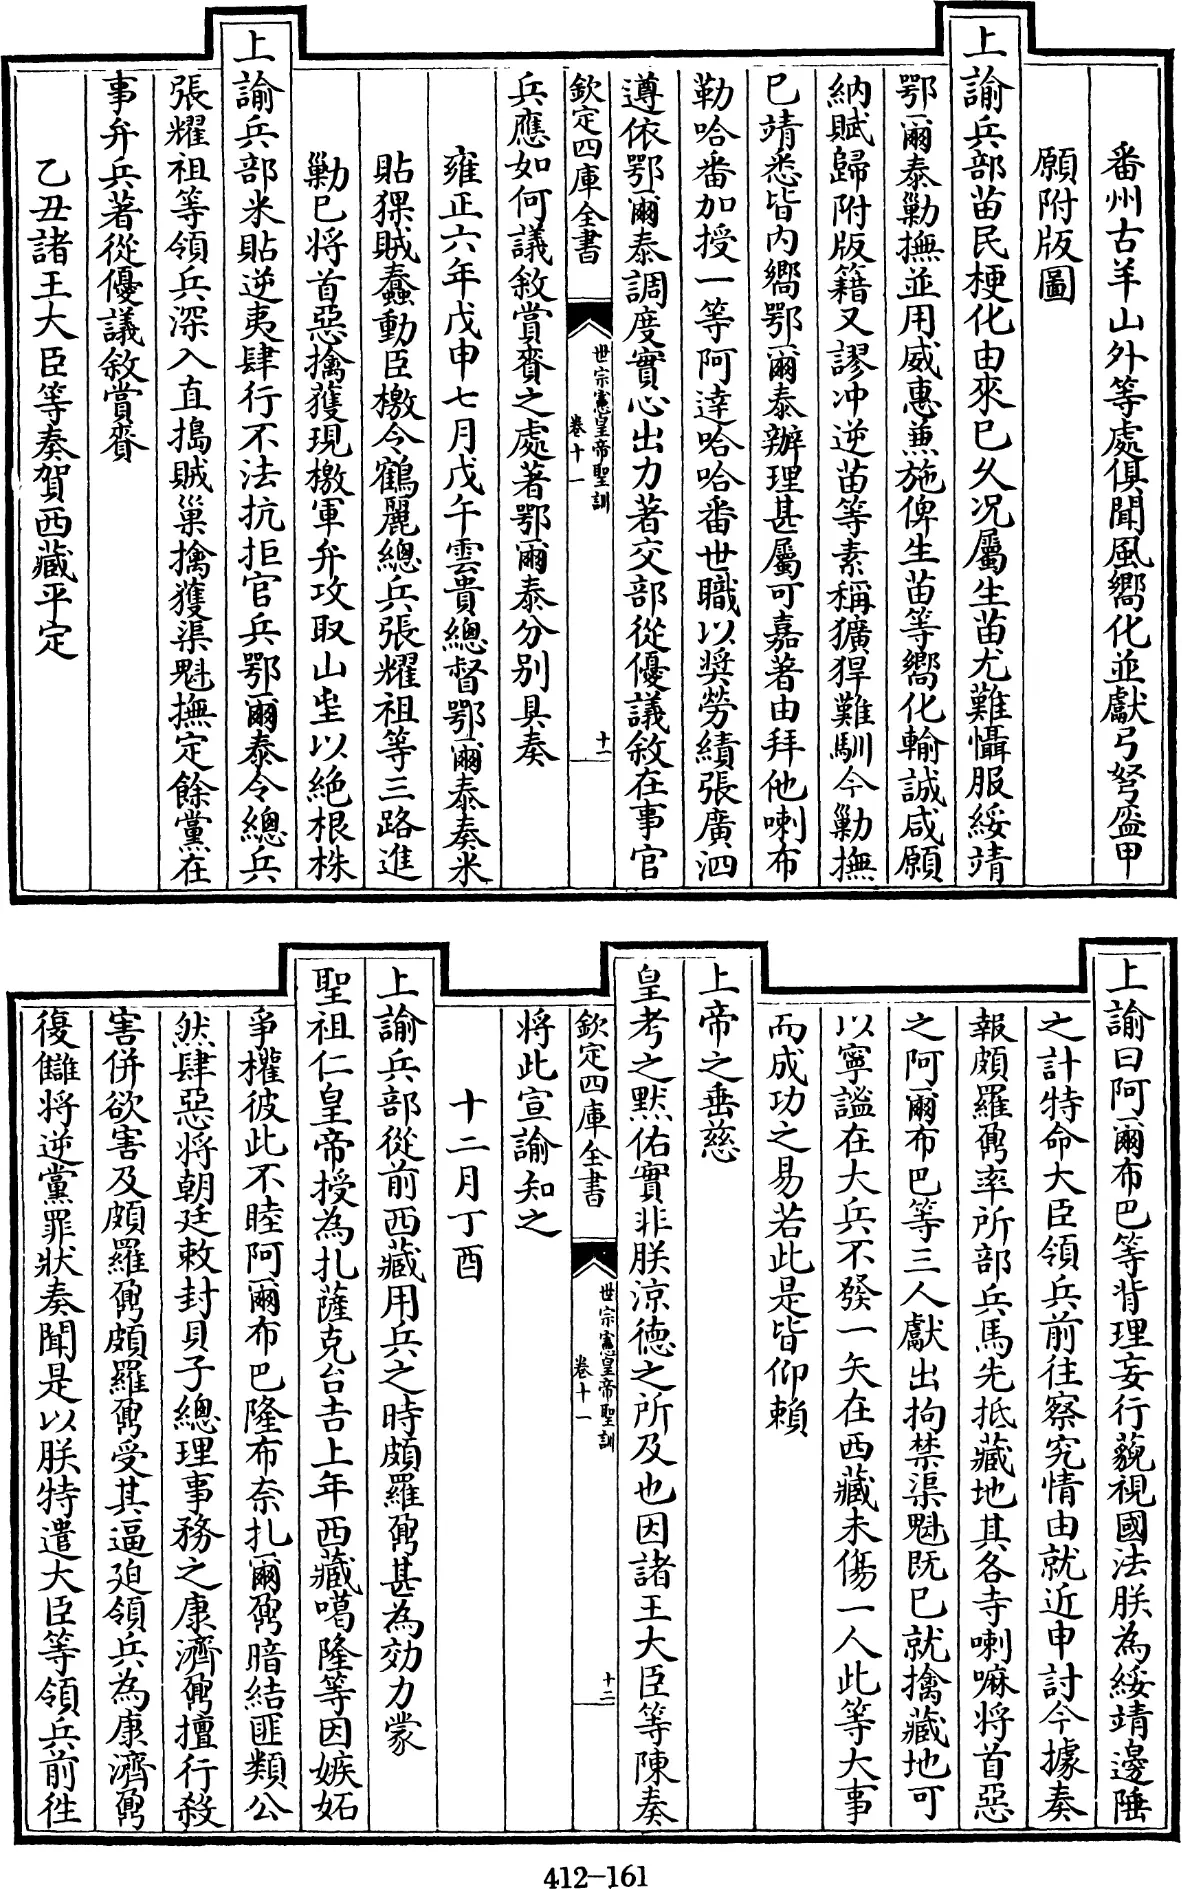 番州古羊山外等處俱聞風嚮化並獻弓弩盔甲
願附版圖
上諭兵部苗民梗化由來已久况屬生苗尤難懾服綏靖
鄂爾泰勦撫並用威惠兼施俾生苗等嚮化輸誠咸願
納賦歸附版籍又謬冲逆苗等素稱獷猂難馴今勦撫
已靖悉皆内嚮鄂爾泰辦理甚屬可嘉著由拜他喇布
勒哈番加授一等阿達哈哈番世職以奬勞績張廣泗
遵依鄂爾泰調度實心出力著交部從優議敘在事官
欽定四庫全書
世宗憲皇帝聖訓
卷十一
十一
兵應如何議敘賞賚之處著鄂爾泰分别具奏
雍正六年戊申七月戊午雲貴總督鄂爾泰奏米
貼猓賊蠢動臣檄令鶴麗總兵張耀祖等三路進
勦已将首惡擒獲現檄軍弁攻取山坒以絶根株
上諭兵部米貼逆夷肆行不法抗拒官兵鄂爾泰令總兵
張耀祖等領兵深入直搗賊巢擒獲渠魁撫定餘黨在
事弁兵著從優議敘賞賚
乙丑諸王大臣等奏賀西藏平定
上諭曰阿爾布巴等背理妄行藐視國法朕為綏靖邊陲
之計特命大臣領兵前往察究情由就近申討今據奏
報頗羅鼐率所部兵馬先抵藏地其各寺喇嘛将首惡
之阿爾布巴等三人獻出拘禁渠魁既已就擒藏地可
以寧謐在大兵不發一矢在西藏未傷一人此等大事
而成功之易若此是皆仰頼
上帝之垂慈
皇考之黙佑實非朕涼德之所及也因諸王大臣等陳奏
欽定四庫全書
世宗憲皇帝聖訓
卷十一
十二
将此宣諭知之
十二月丁酉
上諭兵部從前西藏用兵之時頗羅鼐甚為効力蒙
聖祖仁皇帝授為扎薩克台吉上年西藏噶隆等因嫉妬
爭權彼此不睦阿爾布巴隆布奈扎爾鼐暗結匪類公
然肆惡將朝廷敕封貝子總理事務之康濟鼐擅行殺
害併欲害及頗羅鼐頗羅鼐受其逼迫領兵為康濟鼐
復讎将逆黨罪狀奏聞是以朕特遣大臣等領兵前往
412-161